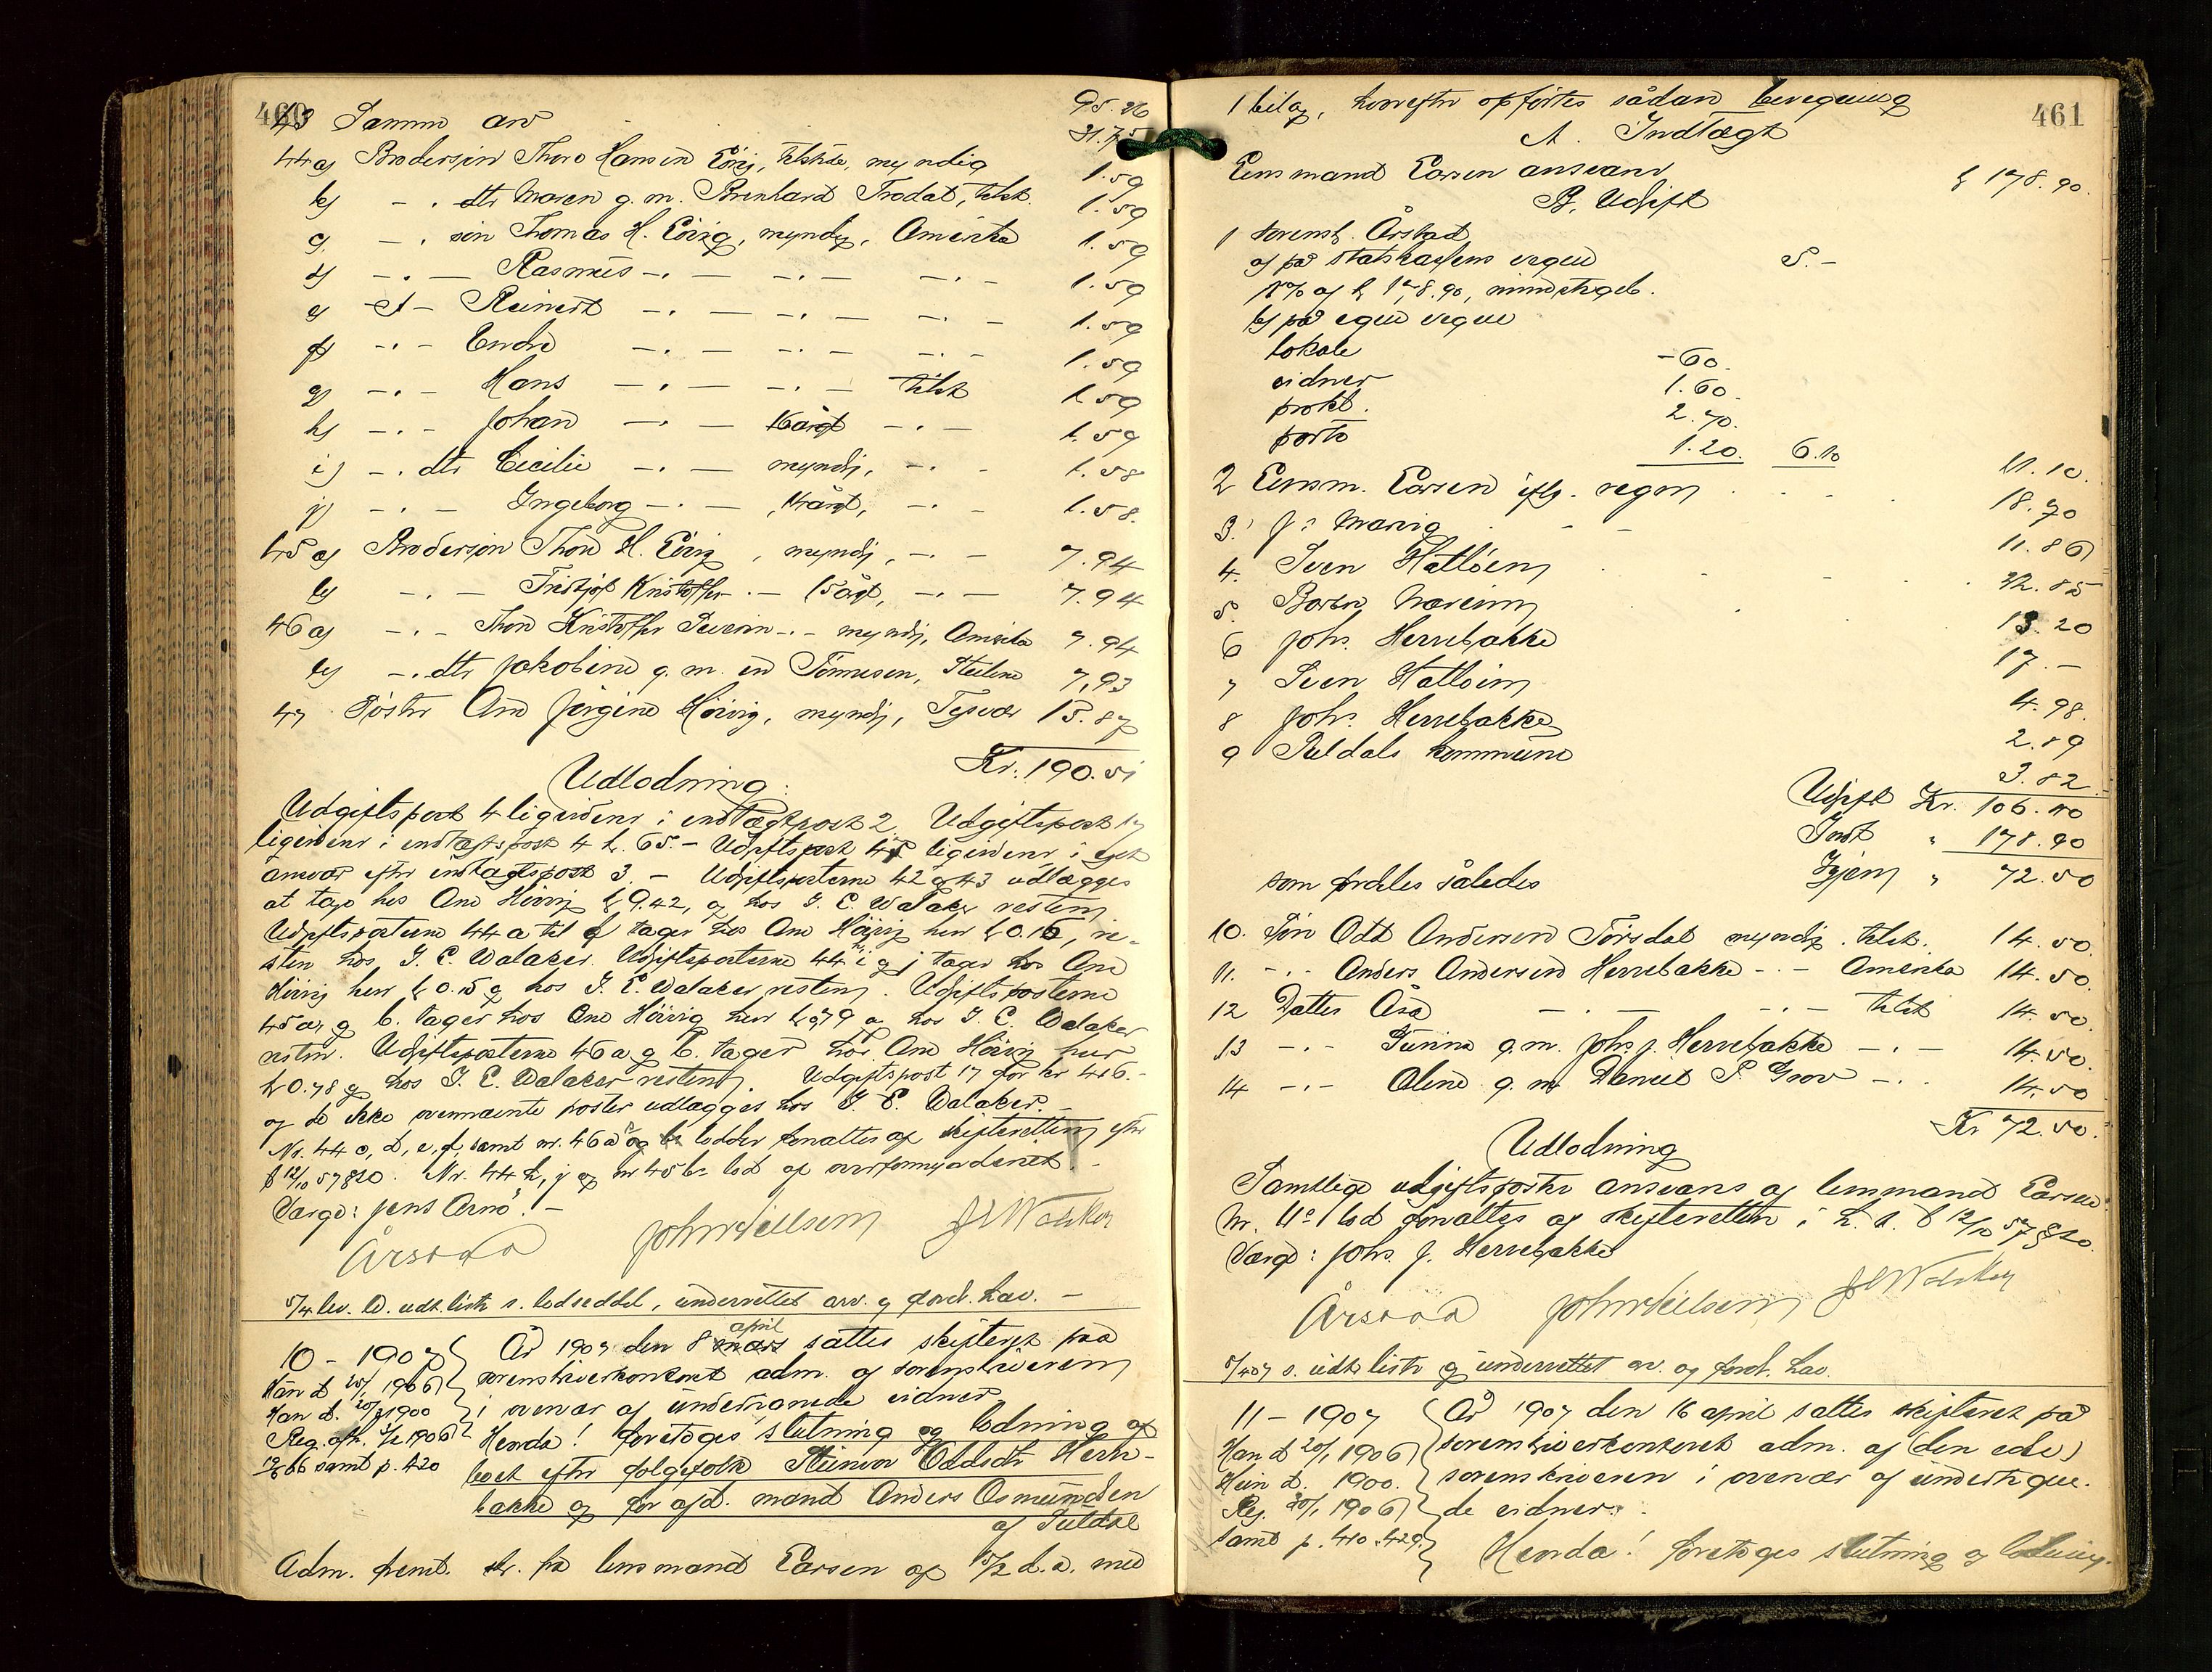 460
43 Samme arv 95.26
31.75
44 a) Brodersøn Thore Hansen Eirig, tilstede, myndig 1.59
b) - . dtr Maren g. m. Bernhard Frodat, tilst. 1.59
c) - . søn Thomas H. Eirig, myndig, Amerika 1.59
d) - . - Rasmus - . - - . - - . - 1.59
e) - Reinert - . - - . - - . - 1.59
f) - . - Endre - . - - . - - . - 1.59
g) - . - Hans - . - - . - tilst 1.59
h) - . - Johan - . - - . - 1.59
i) - . dtr Cecilie - . - myndig, - . - 1.58
j) - . - Ingeborg - . - - . - 1.58.
45 a) Brodersøn Thore H. Eirig, myndig, - . - 7.94
b) - . - Kristoffer - . - 15 årg., - . - 7.94
46 a) - . - Thore Kristoffer - . - myndig, Amerika 7.94
b) - . dtr Jakobine g. m. en Tönnesen, 7,93
47 Søster Ane Jørgine Høivig, myndig, Tysvær 15.87
Kr. 190.51
Udlodning:
Udgiftspost 4 ligeidenr i indtægtpost 2. Udgiftspost 17
ligeidenr i indtægtspost 4 k. 65. - Udgiftspost 45 ligeidenr i eget
ansvar efter indtægtspost 3. - Udgiftsposterne 42 og 43 udlægges
at tage hos Ane Høivig k 9.42, og hos J. E. Walaker resten
Udgiftsposterne 44 a til f tager hos Ane Høivig hver k 0.16, re-
sten hos J. E. Walaker. Udgiftsposterne 44 i og j tager hos Ane
Høivig hver k 0.15 og hos J. E. Walaker resten. Udgiftsposterne
45 a og b. tager hos Ane Høivig hver k 0,79 og hos J. E. Walaker
resten. Udgiftsposterne 46 a og b. tager hos Ane Høivig hver
k 0.78 og hos J. E. Walaker resten. Udgiftspost 17 for kr 416.-
og de ikke ovennævnte poster udlægges hos J. E. Walaker.
Nr. 44 c, d, e, f, samt nr. 46 a og b lodder forvaltes af skifteretten efter
b 12/10 57820. Nr. 44 h, j og nr 45 b lod af overformynderiet. -
Værge: Jens Arnø. -
Årstad John Nilsen J E Walaker
5/4 lev. W. udt. liste s. lodseddel, underrettet arv. og ford. hav. -
10 - 1907 År 1907 den 8 mars april sattes skifteret paa
Han d 20/1 1906 sorenskriverkontoret adm. af sorenskriveren
Han d. 1900 i overvær af undertegnede vidner
Reg. afh. 1/2 1906 Henda! foretoges slutning og lodning af
166 samt p. 420 boet efter følgefolk Steinvor Oddsdtr Herre-
bakke og før afd. mand Anders Osmundsen
af Suldal
Adm. fremt. skr. fra lensmand Larsen af 15/2 d.a. med
461
1 bilag, hvorefter opførtes sådan beregning
A. Indtægt
Lensmand Larsen ansvar k 178.90.
B. Udgift
1 sorensk. Årstad
a) på statskassens vegne 5.-
1% af k 178.90, mindstegeb.
b) på egne vegne
lokale -60.
vidner 1.60.
prokl. 2.70.
porto 1.20. 6.10 11.10.
2 Lensm. Larsen iflg. regn . . . 18.70
3. J: - - 11.86
4. Sven Hatløen . - . 22.85
5. . 13.20
6 Johs. Herrebakke 17.-
7 Sven Hatløen 4.98.
8 Johs. Herrebakke 2.89
9 Suldals kommune 3.82
Udgift Kr. 106.40
Indt " 178.90
Igjen " 72.50
som fordeles således
10. Søn Odd Andersen Førsdal myndig. tilst. 14.50.
11. - . - Anders Andersen Herrebakke - . - Amerika 14.50.
12 Datter Åsa - . - - . - tilst 14.50.
13 - . - Gurina g.m. Johs. J. Herrebakke - . - 14.50.
14 - . - Oline g. m Daniel S. Grov - . . 14.50
Kr 72.50.
Udlodning
Samtlige udgiftsposter ansvares af lensmand Larsen.
Nr. 11s lod forvaltes af skifteretten i h. t. b 12/10 57820.
Værge: Johs. J. Herrebakke
Årstad John Nilsen J E Walaker
5/4 07 s. udt. liste og underrettet arv. og fordr. hav.
11 - 1907 År 1907 den 16 april sattes skifteret på
Han d 20/1 1906 sorenskriverkontoret adm. af (den edv.)
Hun d. 1900. sorenskriveren i overvær af undertegne.
Reg. 20/1 1906 de vidner.
samt p. 410.429. Henda! foretoges slutning og lodning.